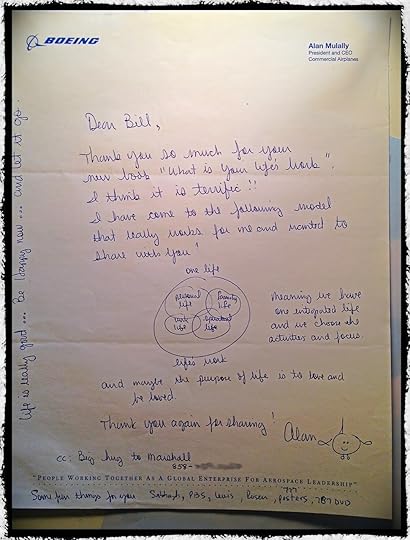 BOEING
Alan Mulally
President and CEO
Commercial Airplanes
Dear Bill,
Thank you so much for your
new book "What is Your life's Work".
I think it is terrific!!
I have come to the following model
that really works for me and wanted to
share with you!
one life
personal life
family life
work life
spiritual life
life's work
meaning we have
one integrated life
and we choose the
activities and focus.
and maybe the purpose of life is to love and
be loved.
Thank you again for sharing!
Alan
cc: Big hug to Marshall
858-
"PEOPLE WORKING TOGETHER AS A GLOBAL ENTERPRISE FOR AEROSPACE LEADERSHIP"
Some fun things for you PBS, Lewis, posters, 787 DVD
777
Life is really good... be happy now... and let it go.